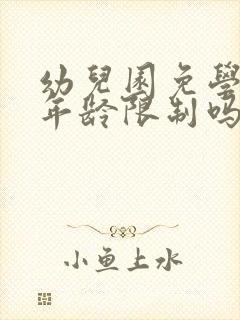 幼兒園免學
年齡限制嗎
小魚上水